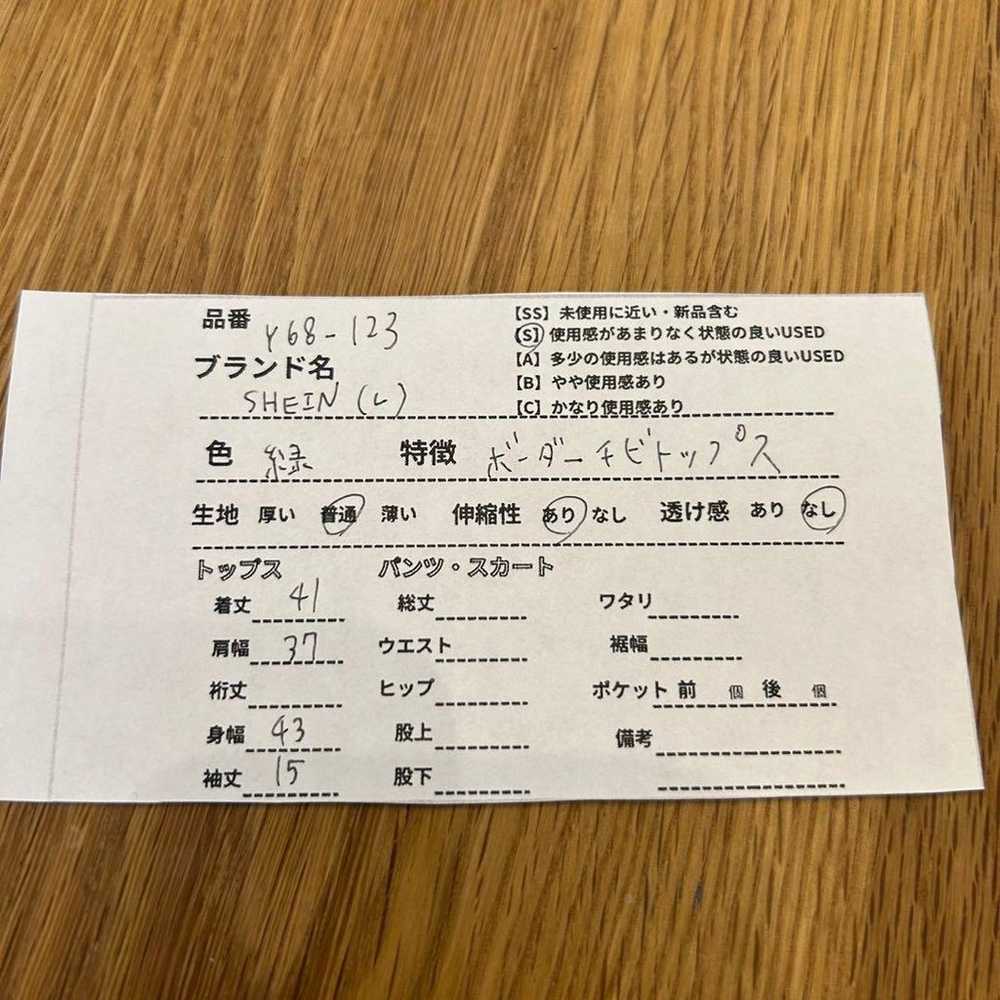 品番 Y68-123
ブランド名
SHEIN (L)
【SS】未使用に近い・新品含む
【S】使用感があまりなく状態の良いUSED
【A】多少の使用感はあるが状態の良いUSED
【B】やや使用感あり
【C】かなり使用感あり
色 緑 特徴 ボーダーチビトップス
生地 厚い 普通 薄い 伸縮性 あり なし 透け感 あり なし
トップス パンツ・スカート
着丈 41 総丈 ワタリ
肩幅 37 ウエスト 裾幅
裄丈 ヒップ ポケット 前 個 後 個
身幅 43 股上 備考
袖丈 15 股下